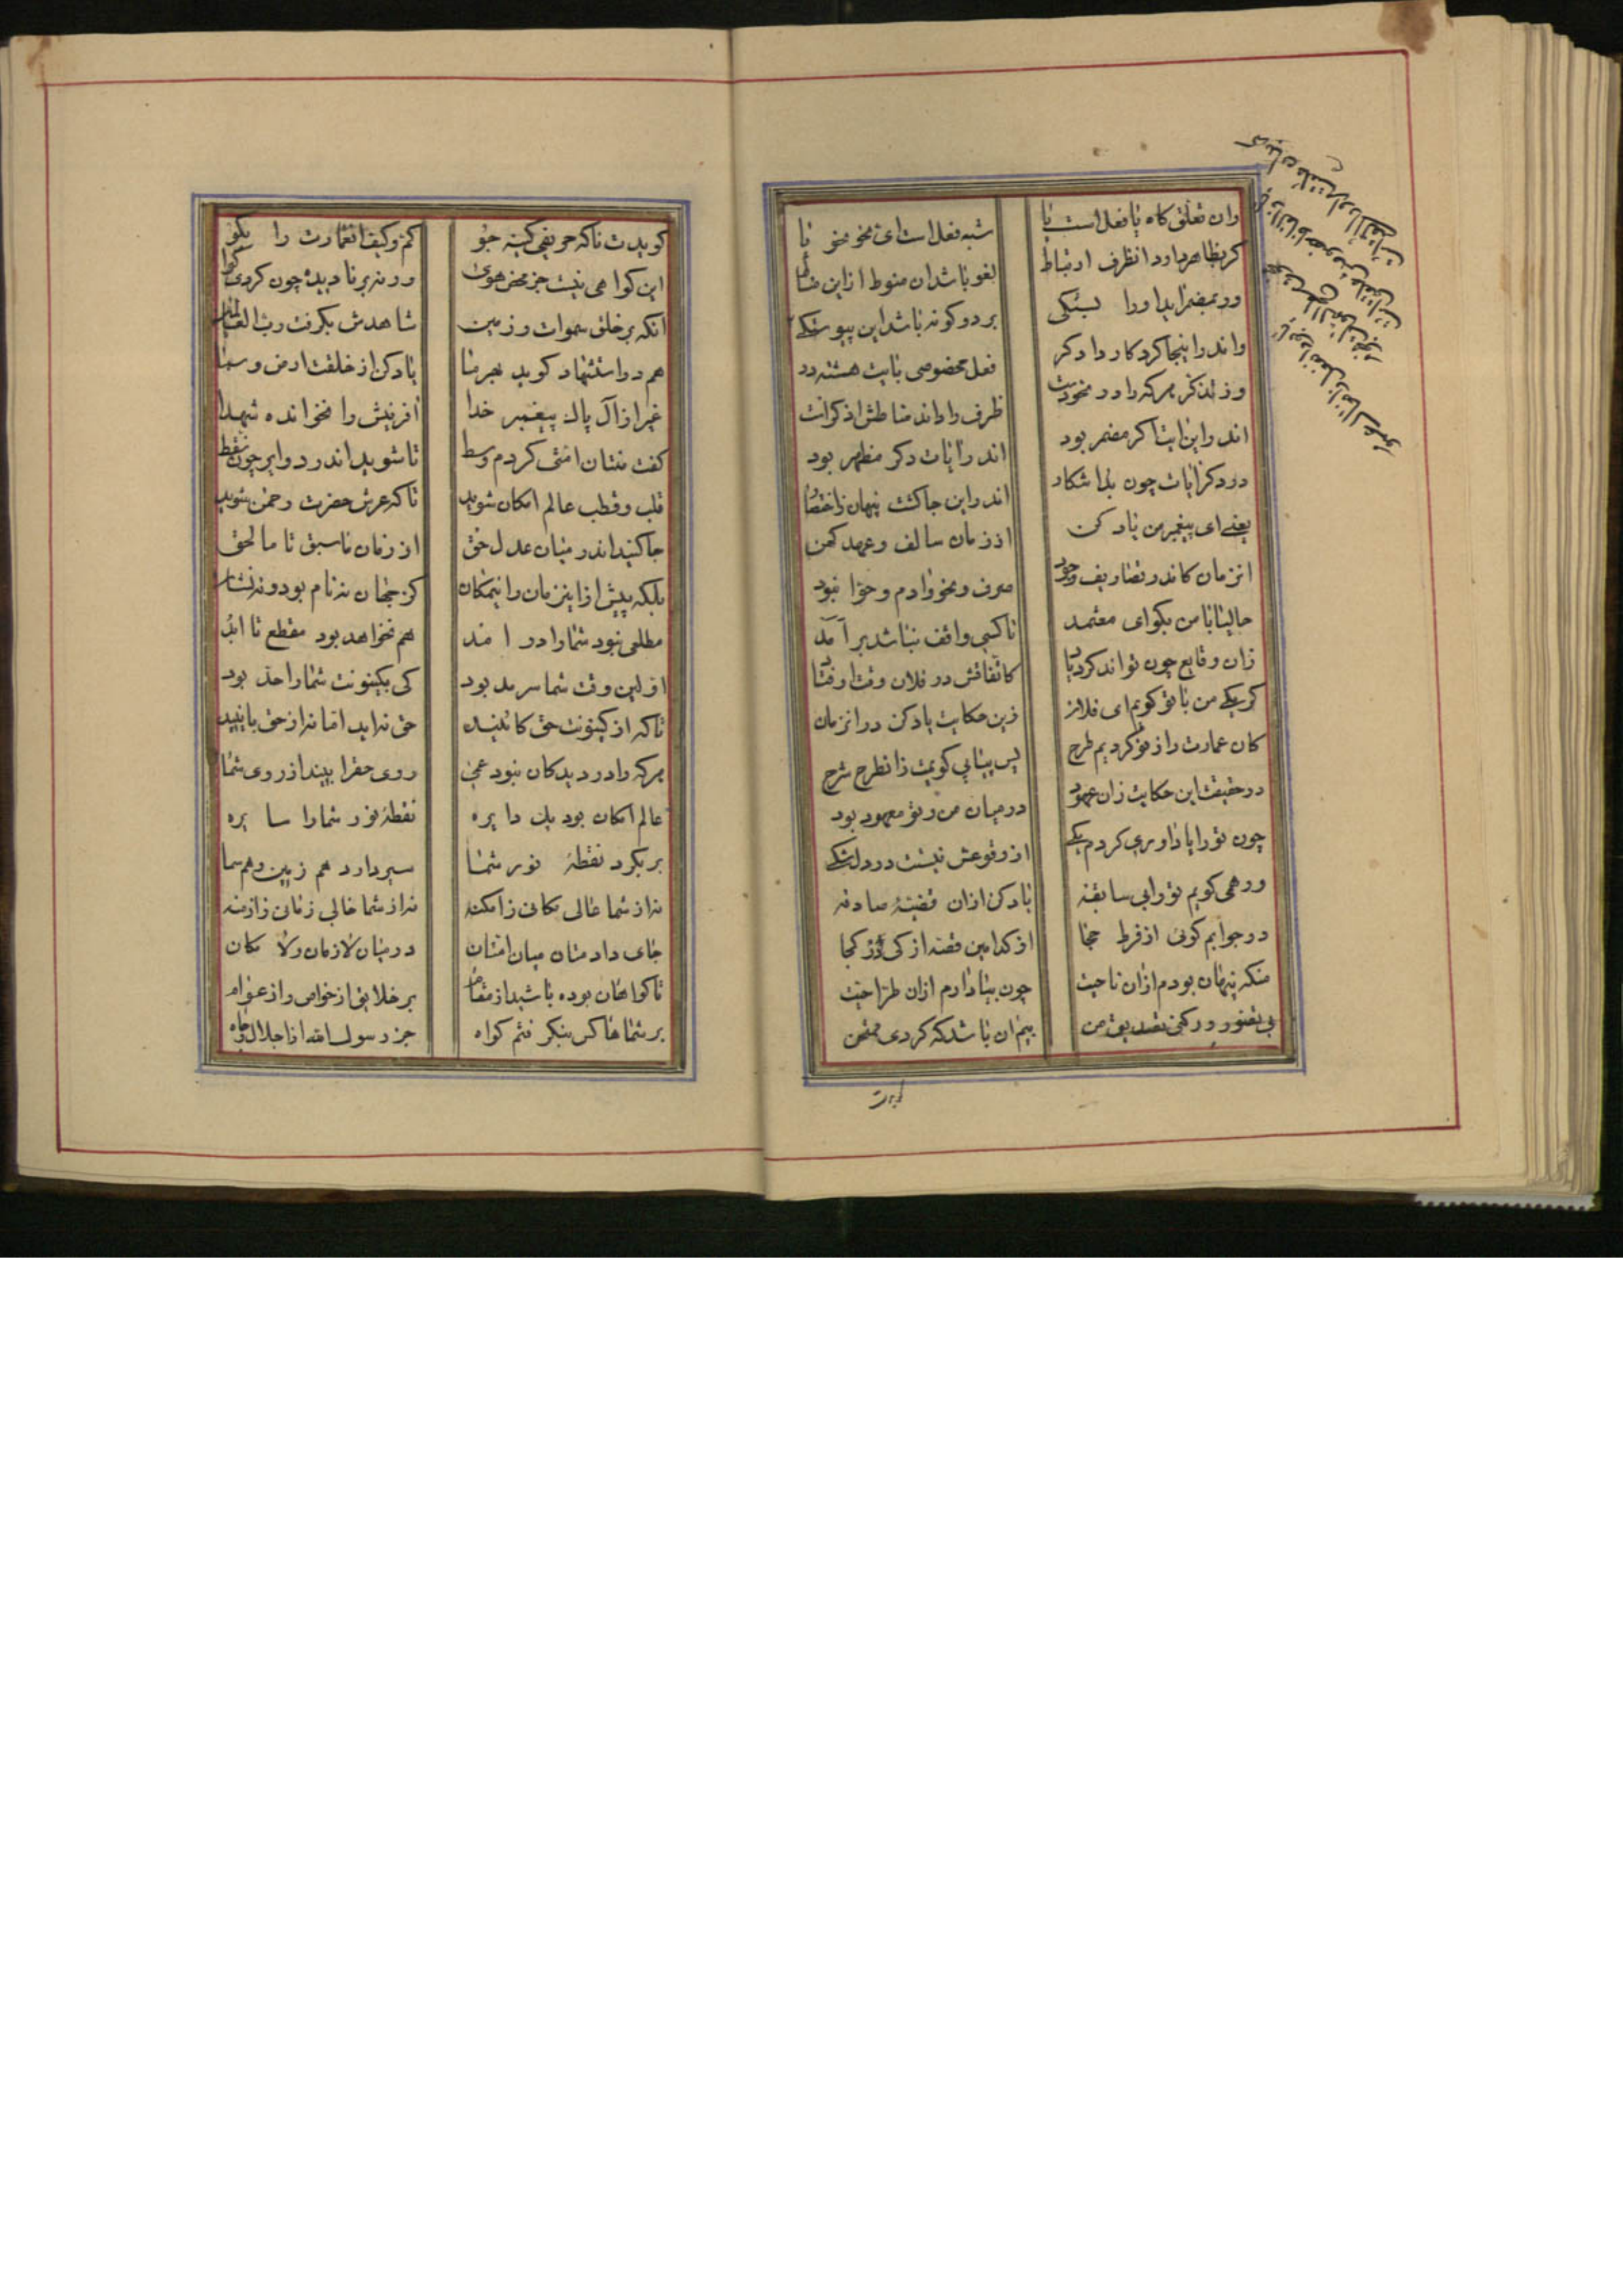 وان تعلق کاه با فعل است یا شبه فعل است ای نحو نحو یا
کر بظاهر دارد انظرف ارتباط لغو باشد ان منوط از این مناط
ور بمضمر اید او را بستکی بر دو کونه باشد این پیوستکی
واند راینجا کرد کار دادکر فعل مخصوصی بایت هشته در
وز تذکر هرکه را در نحو ظرف را داند مناطش اذکر است
اند راین ایت اکر مضمر بود اند رایات دکر مظهر بود
در دکر ایات چون بد اشکار اند راین جا کشت پنهان ز اختصار
یعنی ای پیغمبر من یاد کن از زمان سالف و عهد کهن
انزمان کاندر تصاریف وجود صرف و نحو ادم و حوا نبود
حالیا با من بکو ای معتمد تا کسی واقف نباشد بر آمد
زان وقایع چون تواند کرد یاد کاتفاقش در فلان وقت اوفتاد
کر یکی من با تو کویم ای فلان زین حکایت یاد کن در انزمان
کان عمارت را ز نو کردیم طرح پس بیتابی کویمت زانطرح شرح
در حقیقت این حکایت زان عهود در میان من و تو معهود بود
چون تو را یاداوری کردم یکی از وقوعش نیست در دل شکی
ور همی کویم تو را بی سابقه یاد کن از ان قضیه صادقه
در جوابم کوئی از فرط حجا از کدامین قصه از کی وز کجا
منکه پنهان بودم از ان ناحیت چون بیاد ارم ازان طرّاحیت
بی تصور ور کنی تصدیق من بیم ان باشد که کردی ممتحن
کویدت ناکه حریفی کینه جو کم و کیف انعمارت را بکو
این کواهی نیست جز محض هوی ور نه بر نادیده چون کردی کوا
انکه بر خلق سموات و زمین شاهدش بکرفت رب العالمین
هم در استشهاد کوید یاد کن از خلقت ارض و سما
غیر از آل پاک پیغمبر خدا افرینش را نخوانده شهدا
کفت منتان امتی کردم وسط تا شوید اندر دوایر چون نقط
قلب و قطب عالم امکان شوید تا که عرش حضرت رحمن شوید
جا کنید اندر میان عدل حق از زمان ما سبق تا ما لحق
بلکه پیش از اینزمان و اینمکان کز جهان نه نام بود و نه نشان
مطلعی نبود شما را در امد هم نخواهد بود مقطع تا ابد
اولین وقت شما سرمد بود کی بکینونت شما را حد بود
تا که از کینونت حق کائنید حق نه اید اما نه از حق باینید
هر که را در دیدکان نبود عمی روی حقرا بیند از روی شما
عالم امکان بود یک دایره نقطه نور شما را سایره
بر بکرد نقطه نور شما سیر دارد هم زمین و هم سما
نه از شما خالی مکانی ز امکنه نه از شما خالی زمانی ز ازمنه
جای دادمتان میان امتان در میان لازمان و لا مکان
تا کواهان بوده باشید از مقام بر خلایق از خواص و از عوام
بر شما هم کس بنکر فتم کواه جز رسول الله از اجلال و جاه